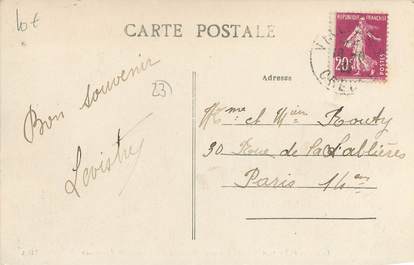 10€
CARTE POSTALE
REPUBLIQUE FRANÇAISE
20c
POSTES
CREUSE
Adresse
23
Bon souvenir
Levistre
Mme et Mlle Routy
30 Rue de la Sablière
Paris 14em